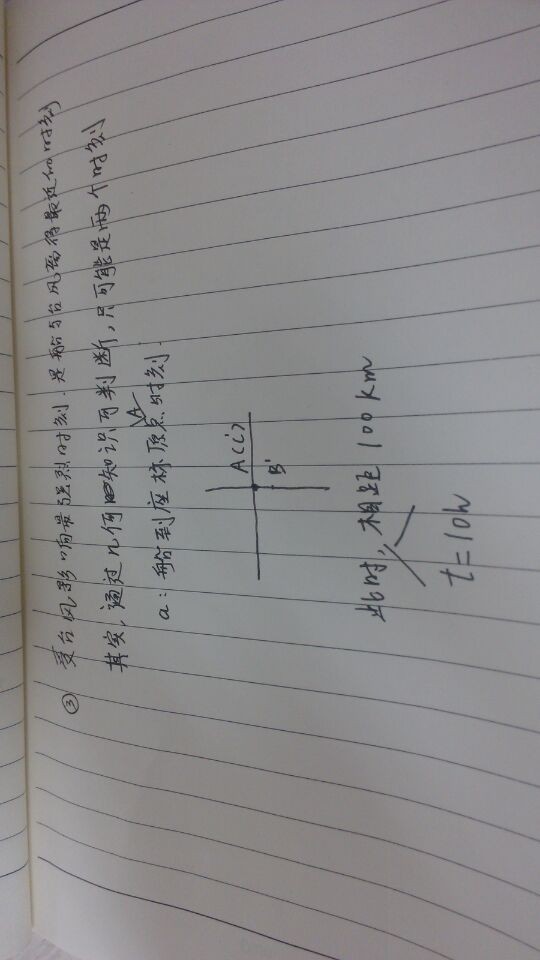 ③ 受台风影响最强烈时刻.是船与台风离得最近的时刻
其实,通过几何知识可判断,只可能是两个时刻
a:船到座标原点时刻.
A(C)
B'
此时,相距100km
t=10h